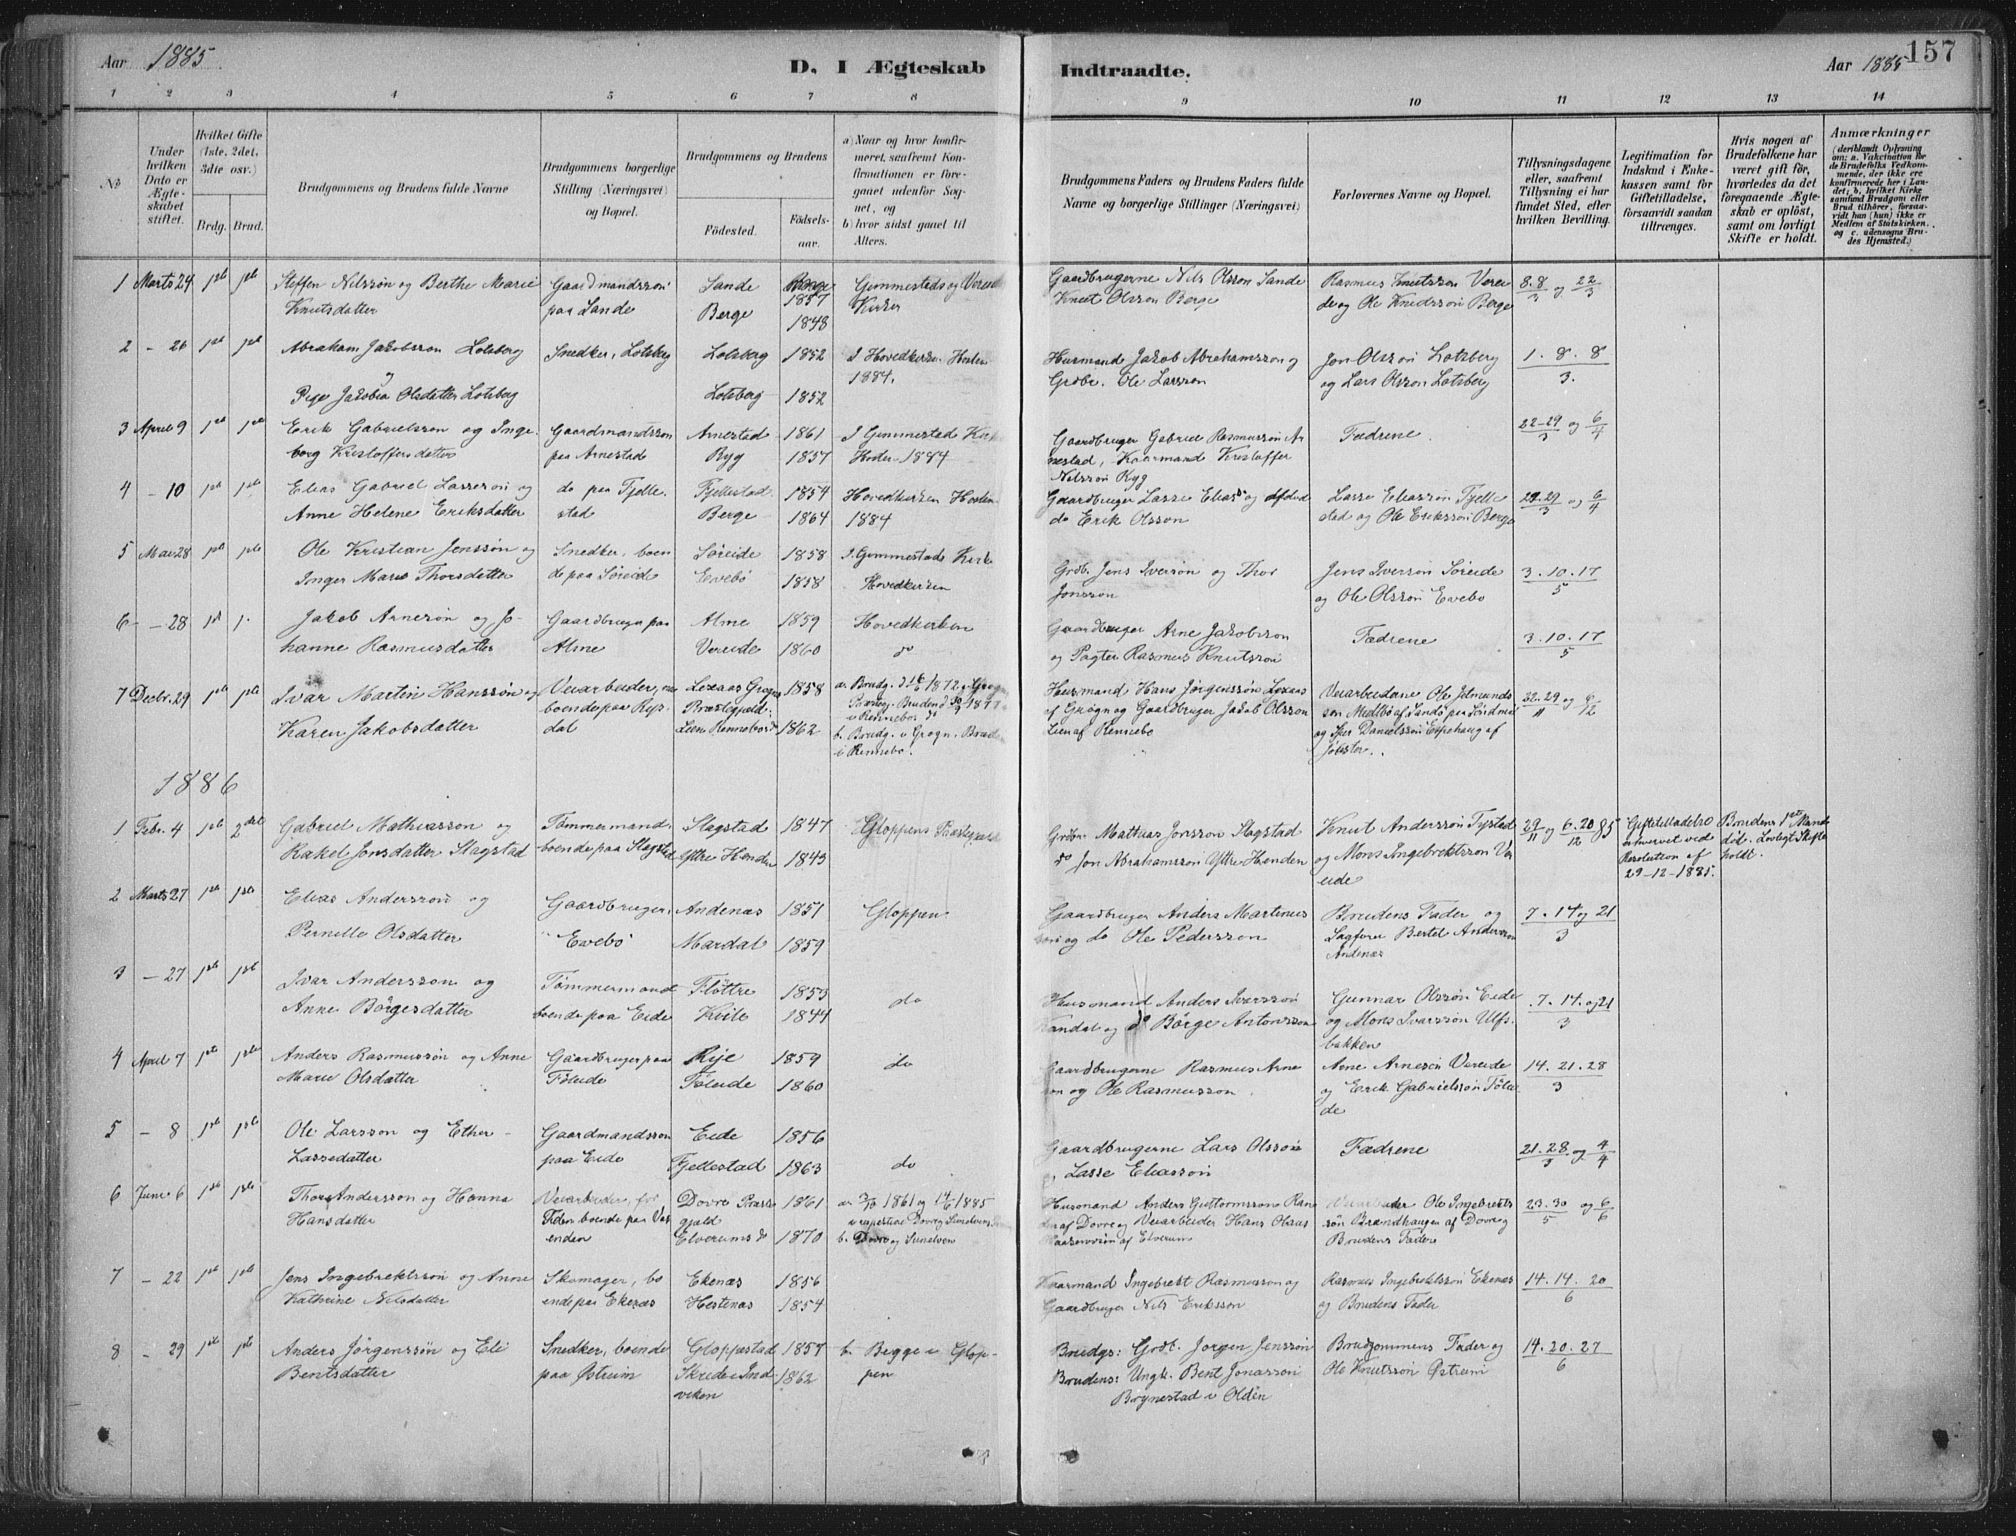 Aar 1885.
D. I Ægteskab
Indtraadte.
Aar 1885
157
1 2 3 4 5 6 7 8 9 10 11 12 13 14
No
Under hvilken Dato er Ægteskabet stiftet.
Hvilket Gifte (1ste, 2det, 3die osv.)
Brdg. Brud.
Brudgommens og Brudens fulde Navne
Brudgommens borgerlige Stilling (Næringsvei) og Bopæl.
Brudgommens og Brudens
Fødested.
Fødselsaar.
a) Naar og hvor konfirmeret, saafremt Konfirmationen er foregaaet udenfor Sognet, og
b) hvor sidst gaaet til Alters.
Brudgommens Faders og Brudens Faders fulde Navne og borgerlige Stillinger (Næringsvei)
Forlovernes Navne og Bopæl.
Tillysningsdagene eller, saafremt Tillysning ei har fundet Sted, efter hvilken Bevilling.
Legitimation for Indskud i Enkekassen samt for Giftetilladelse, forsaavidt saadan tiltrænges.
Hvis nogen af Brudefolkene har været gift før, hvorledes da det foregaaende Ægteskab er opløst, samt om lovligt Skifte er holdt.
Anmærkninger (deriblandt Oplysning om: a. Vakcination for de Brudefolks Vedkommende, der ikke ere konfirmerede her i Landet; b. hvilket Kirkesamfund Brudgom eller Brud tilhører, forsaavidt han (hun) ikke er Medlem af Statskirken. og c. udensogns Brudes Hjemsted.)
1 Marts 24 1ste 1ste Steffen Nilssøn og Berthe Marie Knutsdatter
Gaardmandssøn paa Sande
Sande 1857
Berge 1848
Gimmestads og Vereide Kirker
Gaardbrugerne Nils Olsson Sande Knut Olsson Berge
Rasmus Knutssøn Vereide og Ole Knudssøn Berge
8. 8/3 og 22/3
2 - 26 1ste 1ste Abraham Jakobsson Lotsberg
og
Pige Jakobia Olsdatter Lotsberg
Snedker, Lotsberg
Lotsberg 1852
Lotsberg 1852
I Hovedkirken Hosten 1884.
Husmande Jakob Abrahamsson og Grdbr. Ole Larsson
Jon Olssøn Lotsberg og Lars Olsson Lotsberg
1. 8. 8/3.
3 April 9 1ste 1ste Erik Gabrielsson og Ingeborg Kristoffersdatter
Gaardmandssøn paa Arnestad
Arnestad 1861
Ryg 1857
I Gimmestad Kirke Hosten 1884
Gaardbruger Gabriel Rasmussøn Arnestad, Kaarmand Kristoffer Nilssøn Ryg
Fædrene.
22-29/3 og 6/4
4 - 10 1ste 1ste Elias Gabriel Lassesøn og Anne Helene Eriksdatter
do paa Fjellestad
Fjellestad 1854
Berge 1864
Hovedkirken Hosten 1884
Gaardbruger Lasse Elias og
do Erik Olsson
Lasse Eliassøn Fjellestad og Ole Erikssøn Berge
22. 29/3 og 6/4
5 Mai 28 1ste 1ste Ole Kristian Jenssøn og Inger Marie Thorsdatter
Snedker, boende paa Søreide
Søreide 1858
Evebø 1858
I Gimmestads Kirke
Hovedkirken
Grdb. Jens Iversøn og Thor Jonssøn
Jens Iversøn Søreide og Ole Olssøn Evebø
3. 10. 17/5
6 - 28 1ste 1. Jakob Arnesøn og Johanne Rasmusdatter
Gaardbruger paa Alme
Alme 1859
Vereide 1860
Hovedkirken
do
Gaardbruger Arne Jakobsson og Pagter Rasmus Knutssøn
Fædrene
3. 10. 17/5
7 Decbr. 29 1ste 1ste Ivar Martin Hanssøn og Karen Jakobsdatter
Veiarbeider, boende paa Rysdal
Præstegjeld. 1858
Lien Rennebo do 1862
i Rennebo
b. Brudg. i Grogn. Brud. i Rennebo.
Husmand Hans Jørgenssøn af Grøgn og Gaardbruger Jakob Olsson Lien af Rennebo
Veiarbeidere Ole og Iver Danielssøn Espehaug af Jølster.
22. 29/11 og 6/12
1886
1 Febr. 4 1ste 2det Gabriel Mathiasson og Rakel Jonsdatter Slagstad
Tømmermand, boende paa Slagstad
Slagstad 1847
Yttre Henden 1843
Gloppens Præstegjeld
Grdbr. Mattias Jonsson Slagstad
do Jon Abrahamsson Yttre Henden
Knut Anderssøn Tystad og Mons Ingebrektsson Vereide
29/11 og 6. 20/12 85
Giftetilladelse erhvervet ved Resolution af 29-12-1885.
Brudens 1ste Mand død. Lovligt Skifte holdt.
2 Marts 27 1ste 1ste Elias Anderssøn og Pernille Olsdatter
Gaardbruger, Evebø
Andenæs 1851
Mardal 1859
Gloppen
Gaardbruger Anders Martinussøn og do Ole Pedersson
Brudens Fader og Sagfører Bertel Andersson Andenæs
7. 14 og 21/3
3 - 27 1ste 1ste Ivar Andersson og Anne Børgesdatter
Tømmermand boende paa Eide
Fløttre 1853
Kvile 1844
do
Husmand Anders Iverssøn Kandal og do Børge Antonsson
Gunnar Olssøn Eide og Mons Ivarssøn Ulfsbakken
7. 14. og 21/3
4 April 7 1ste 1ste Anders Rasmussøn og Anne Marie Olsdatter
Gaardbruger paa Føleide
Rije 1859
Føleide 1860
do
Gaardbrugerne Rasmus Arneson og Ole Rasmusson.
Arne Arnesøn Vereide og Erik Gabrielssøn Føleide
14. 21. 28/3
5 - 8 1ste 1ste Ole Larsson og Ether Lassedatter
Gaardmandssøn paa Eide
Eide 1856
Fjellestad 1863
do
Gaardbrugerne Lars Olssøn og Lasse Eliassøn
Fædrene
21. 28/3 og 4/4
6 Juni 6 1ste 1ste Thore Andersson og Hanna Hansdatter
Veiarbeider, for Tiden boende paa Vasenden
Dovre Præstegjeld 1861
Elverums do 1870
b. Dovre og Sunelven
Husmand Anders Guttormsson af Dovre og Veiarbeider Hans Olsen af Elverum
Veiarbeider Ole Ingebrektssøn Brandhaugen af Dovre og Brudens Fader
23. 30/5 og 6/6
7 - 22 1ste 1ste Jens Ingebrektssøn og Anne Kathrine Nilsdatter
Skomager, boende paa Ekenæs
Ekenæs 1856
Hestenæs 1854
Kaarmand Ingebrekt Rasmusson og Gaardbruger Nils Eriksson
Rasmus Ingebrektssøn Ekenæs og Brudens Fader
14. 14. 20/6
8 - 29 1ste 1ste Anders Jørgenssøn og Eli Bentsdatter
Snedker, boende paa Østrem
Gloppestad 1857
Skreide i Indviken 1862
b. Begge i Gloppen
Brudgs: Grdb. Jørgen Jenssøn
Brudens: Ungk. Bent Jonasson Brynestad i Olden
Brudgommens Fader og Ole Knutssøn Østrem
14. 20. 27/6